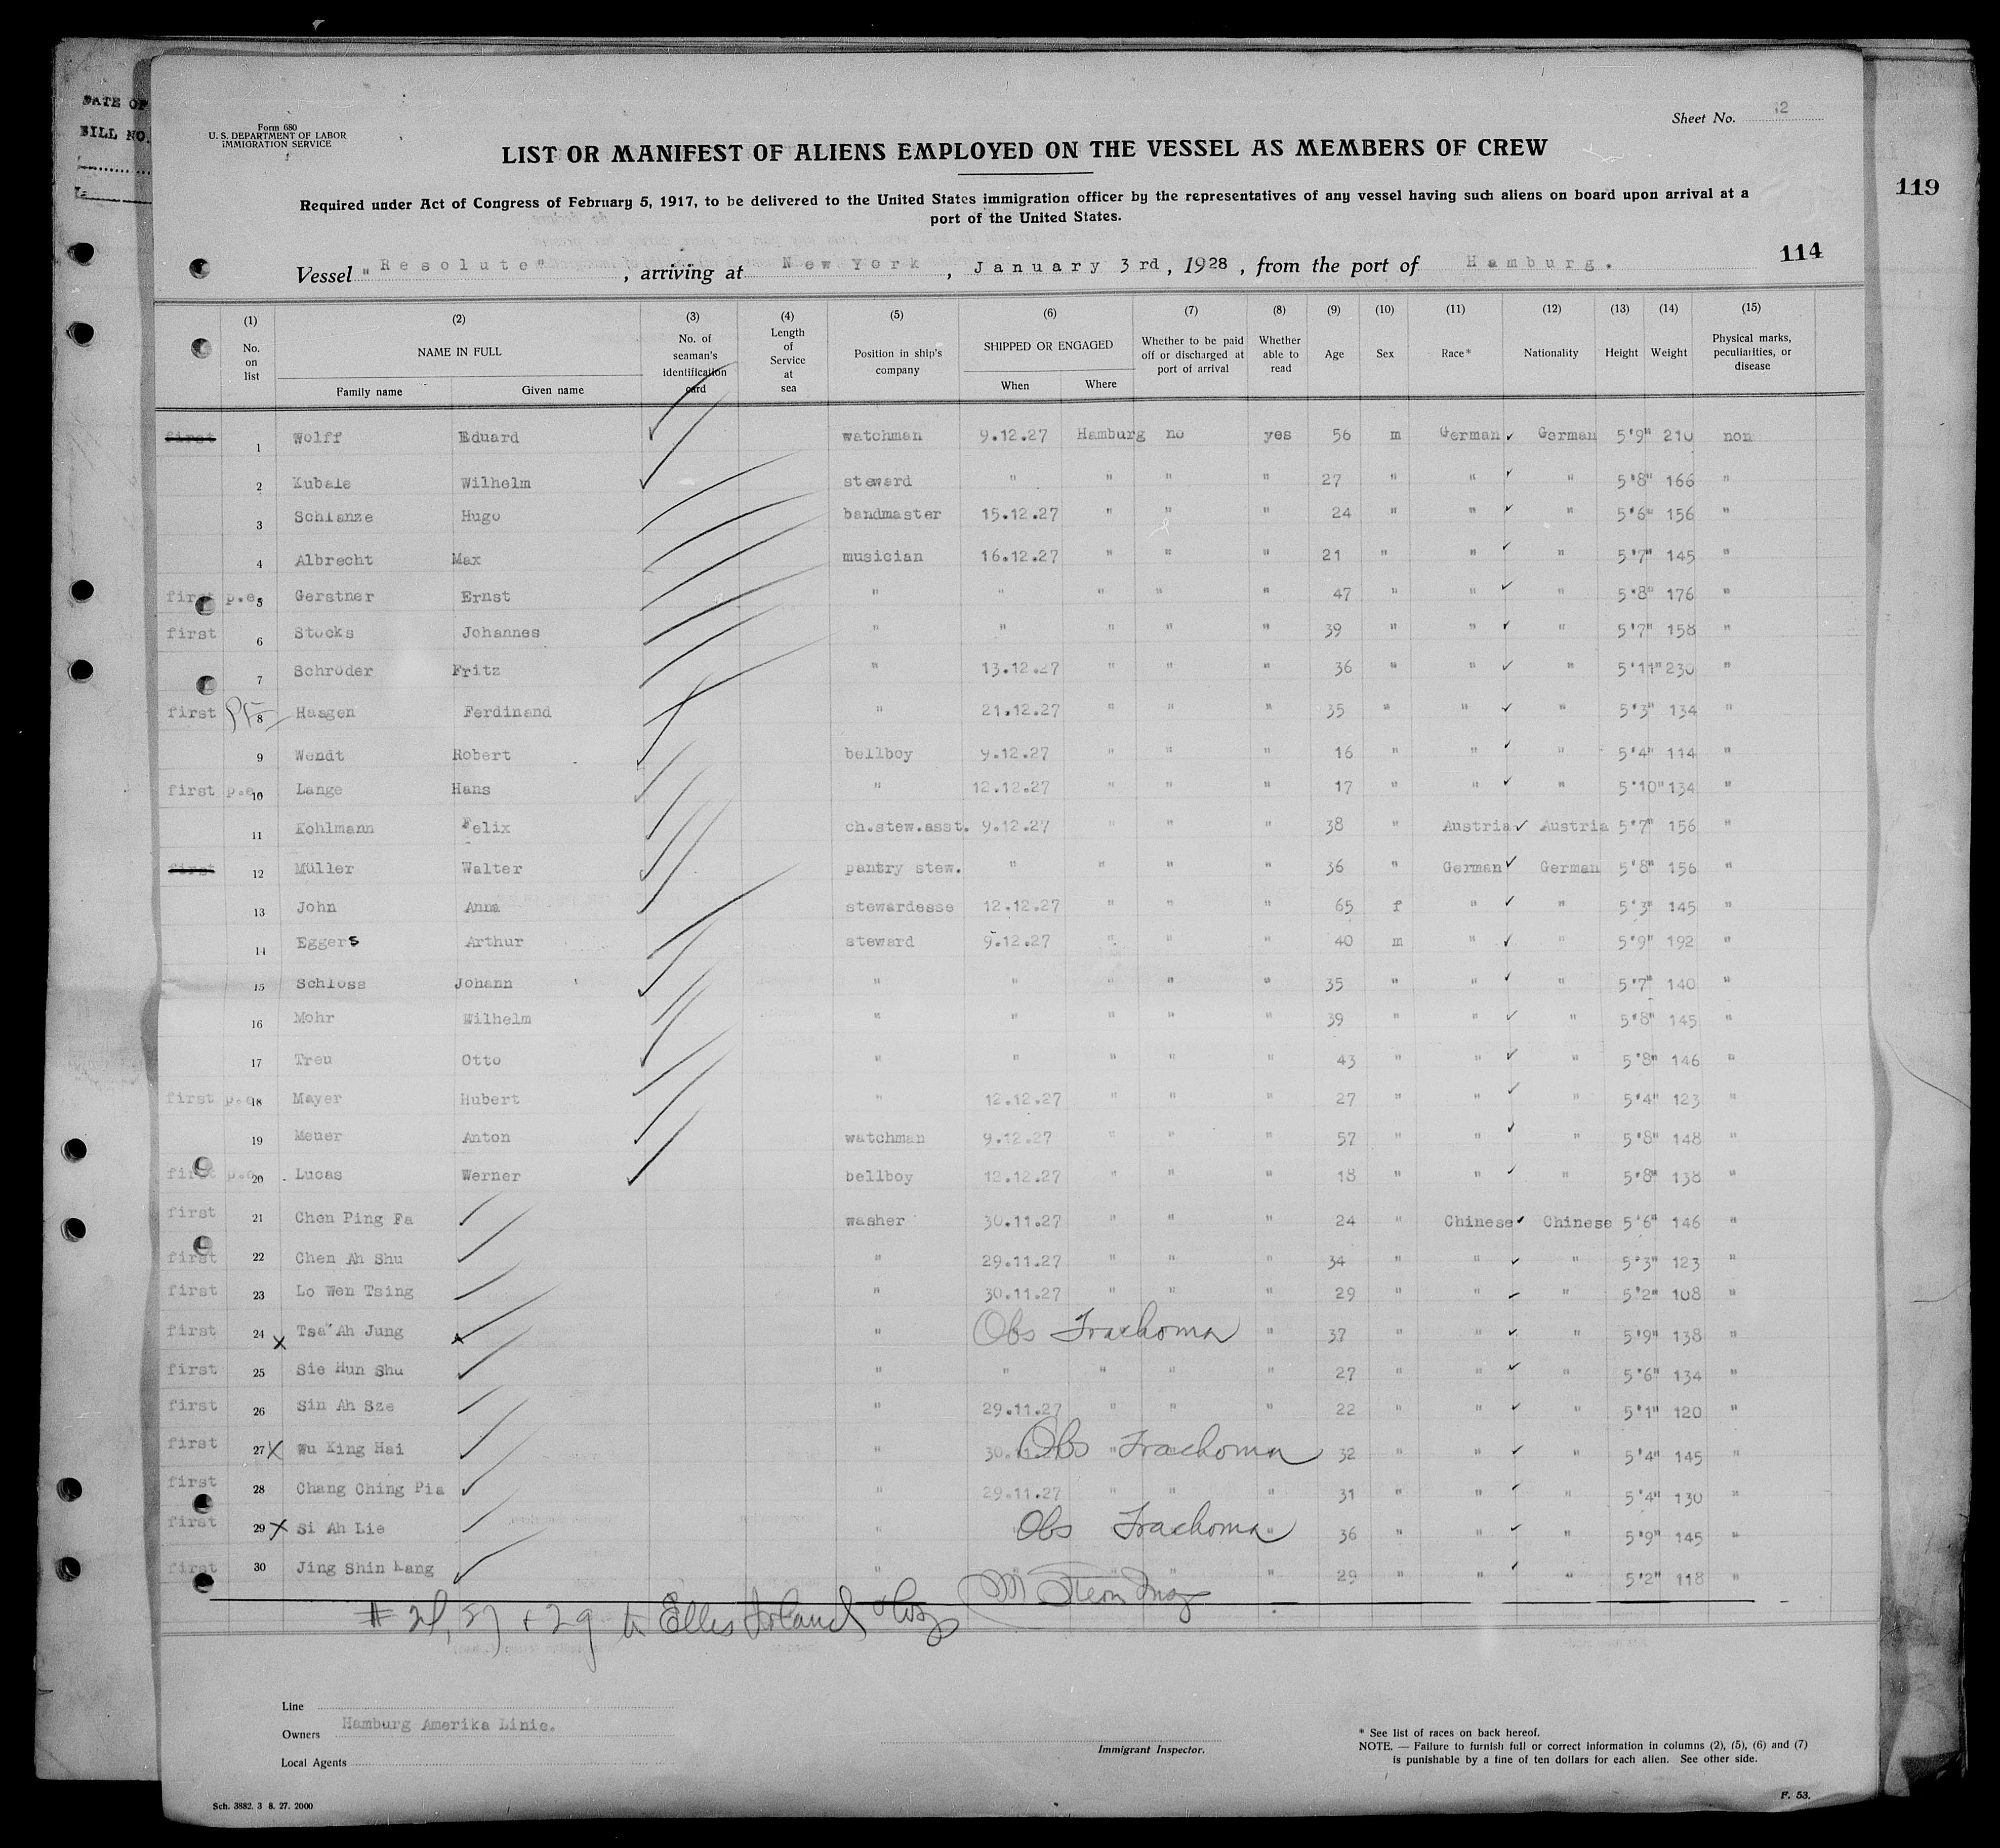 DATE OF
BILL NO.
Form 680
U. S. DEPARTMENT OF LABOR
IMMIGRATION SERVICE
Sheet No. 12
LIST OR MANIFEST OF ALIENS EMPLOYED ON THE VESSEL AS MEMBERS OF CREW
119
Required under Act of Congress of February 5, 1917, to be delivered to the United States immigration officer by the representatives of any vessel having such aliens on board upon arrival at a
port of the United States.
114
Vessel "Resolute", arriving at New York, January 3rd, 1928, from the port of Hamburg.
(1) No. on list
(2) NAME IN FULL Family name Given name
(3) No. of seaman's identification card
(4) Length of Service at sea
(5) Position in ship's company
(6) SHIPPED OR ENGAGED When Where
(7) Whether to be paid off or discharged at port of arrival
(8) Whether able to read
(9) Age
(10) Sex
(11) Race*
(12) Nationality
(13) Height
(14) Weight
(15) Physical marks, peculiarities, or disease
first 1 Wolff Eduard watchman 9.12.27 Hamburg no yes 56 m German German 5'9" 210 non
2 Kubale Wilhelm steward " " " " 27 " " " 5'8" 166 "
3 Schlanze Hugo bandmaster 15.12.27 " " " 24 " " " 5'6" 156 "
4 Albrecht Max musician 16.12.27 " " " 21 " " " 5'7" 145 "
first p.e. 5 Gerstner Ernst " " " " " 47 " " " 5'8" 176 "
first 6 Stocks Johannes " " " " " 39 " " " 5'7" 158 "
7 Schröder Fritz " 13.12.27 " " " 36 " " " 5'11" 230 "
first PE 8 Haagen Ferdinand " 21.12.27 " " " 35 " " " 5'3" 134 "
9 Wendt Robert bellboy 9.12.27 " " " 16 " " " 5'4" 114 "
first p.e. 10 Lange Hans " 12.12.27 " " " 17 " " " 5'10" 134 "
11 Kohlmann Felix ch.stew.asst. 9.12.27 " " " 38 " Austria Austria 5'7" 156 "
first 12 Müller Walter pantry stew. " " " " 36 " German German 5'8" 156 "
13 John Anna stewardesse 12.12.27 " " " 65 f " " 5'3" 145 "
14 Eggers Arthur steward 9.12.27 " " " 40 m " " 5'9" 192 "
15 Schloss Johann " " " " " 35 " " " 5'7" 140 "
16 Mohr Wilhelm " " " " " 39 " " " 5'8" 145 "
17 Treu Otto " " " " " 43 " " " 5'8" 146 "
first p.e. 18 Mayer Hubert " 12.12.27 " " " 27 " " " 5'4" 123 "
19 Meuer Anton watchman 9.12.27 " " " 57 " " " 5'8" 148 "
first p.e. 20 Lucas Werner bellboy 12.12.27 " " " 18 " " " 5'8" 138 "
first 21 Chen Ping Fa washer 30.11.27 " " " 24 " Chinese Chinese 5'6" 146 "
first 22 Chen Ah Shu " 29.11.27 " " " 34 " " " 5'3" 123 "
first 23 Lo Wen Tsing " 30.11.27 " " " 29 " " " 5'2" 108 "
first 24 x Tsa Ah Jung " Obs Trachoma " 37 " " " 5'9" 138 "
first 25 Sie Hun Shu " " " " " 27 " " " 5'6" 134 "
first 26 Sin Ah Sze " 29.11.27 " " " 22 " " " 5'1" 120 "
first 27 x Wu King Hai " 30.11.27 " Obs Trachoma 32 " " " 5'4" 145 "
first 28 Chang Ching Pia " 29.11.27 " " " 31 " " " 5'4" 130 "
first 29 x Si Ah Lie " Obs Trachoma " 36 " " " 5'9" 145 "
first 30 Jing Shin Lang " " " " 29 " " " 5'2" 118 "
# 24, 27 + 29 to Ellis Island Hosp
Line
Owners Hamburg Amerika Linie.
Local Agents
Immigrant Inspector.
* See list of races on back hereof.
NOTE. — Failure to furnish full or correct information in columns (2), (5), (6) and (7)
is punishable by a fine of ten dollars for each alien. See other side.
Sch. 3882. 3 8. 27. 2000
F. 53.